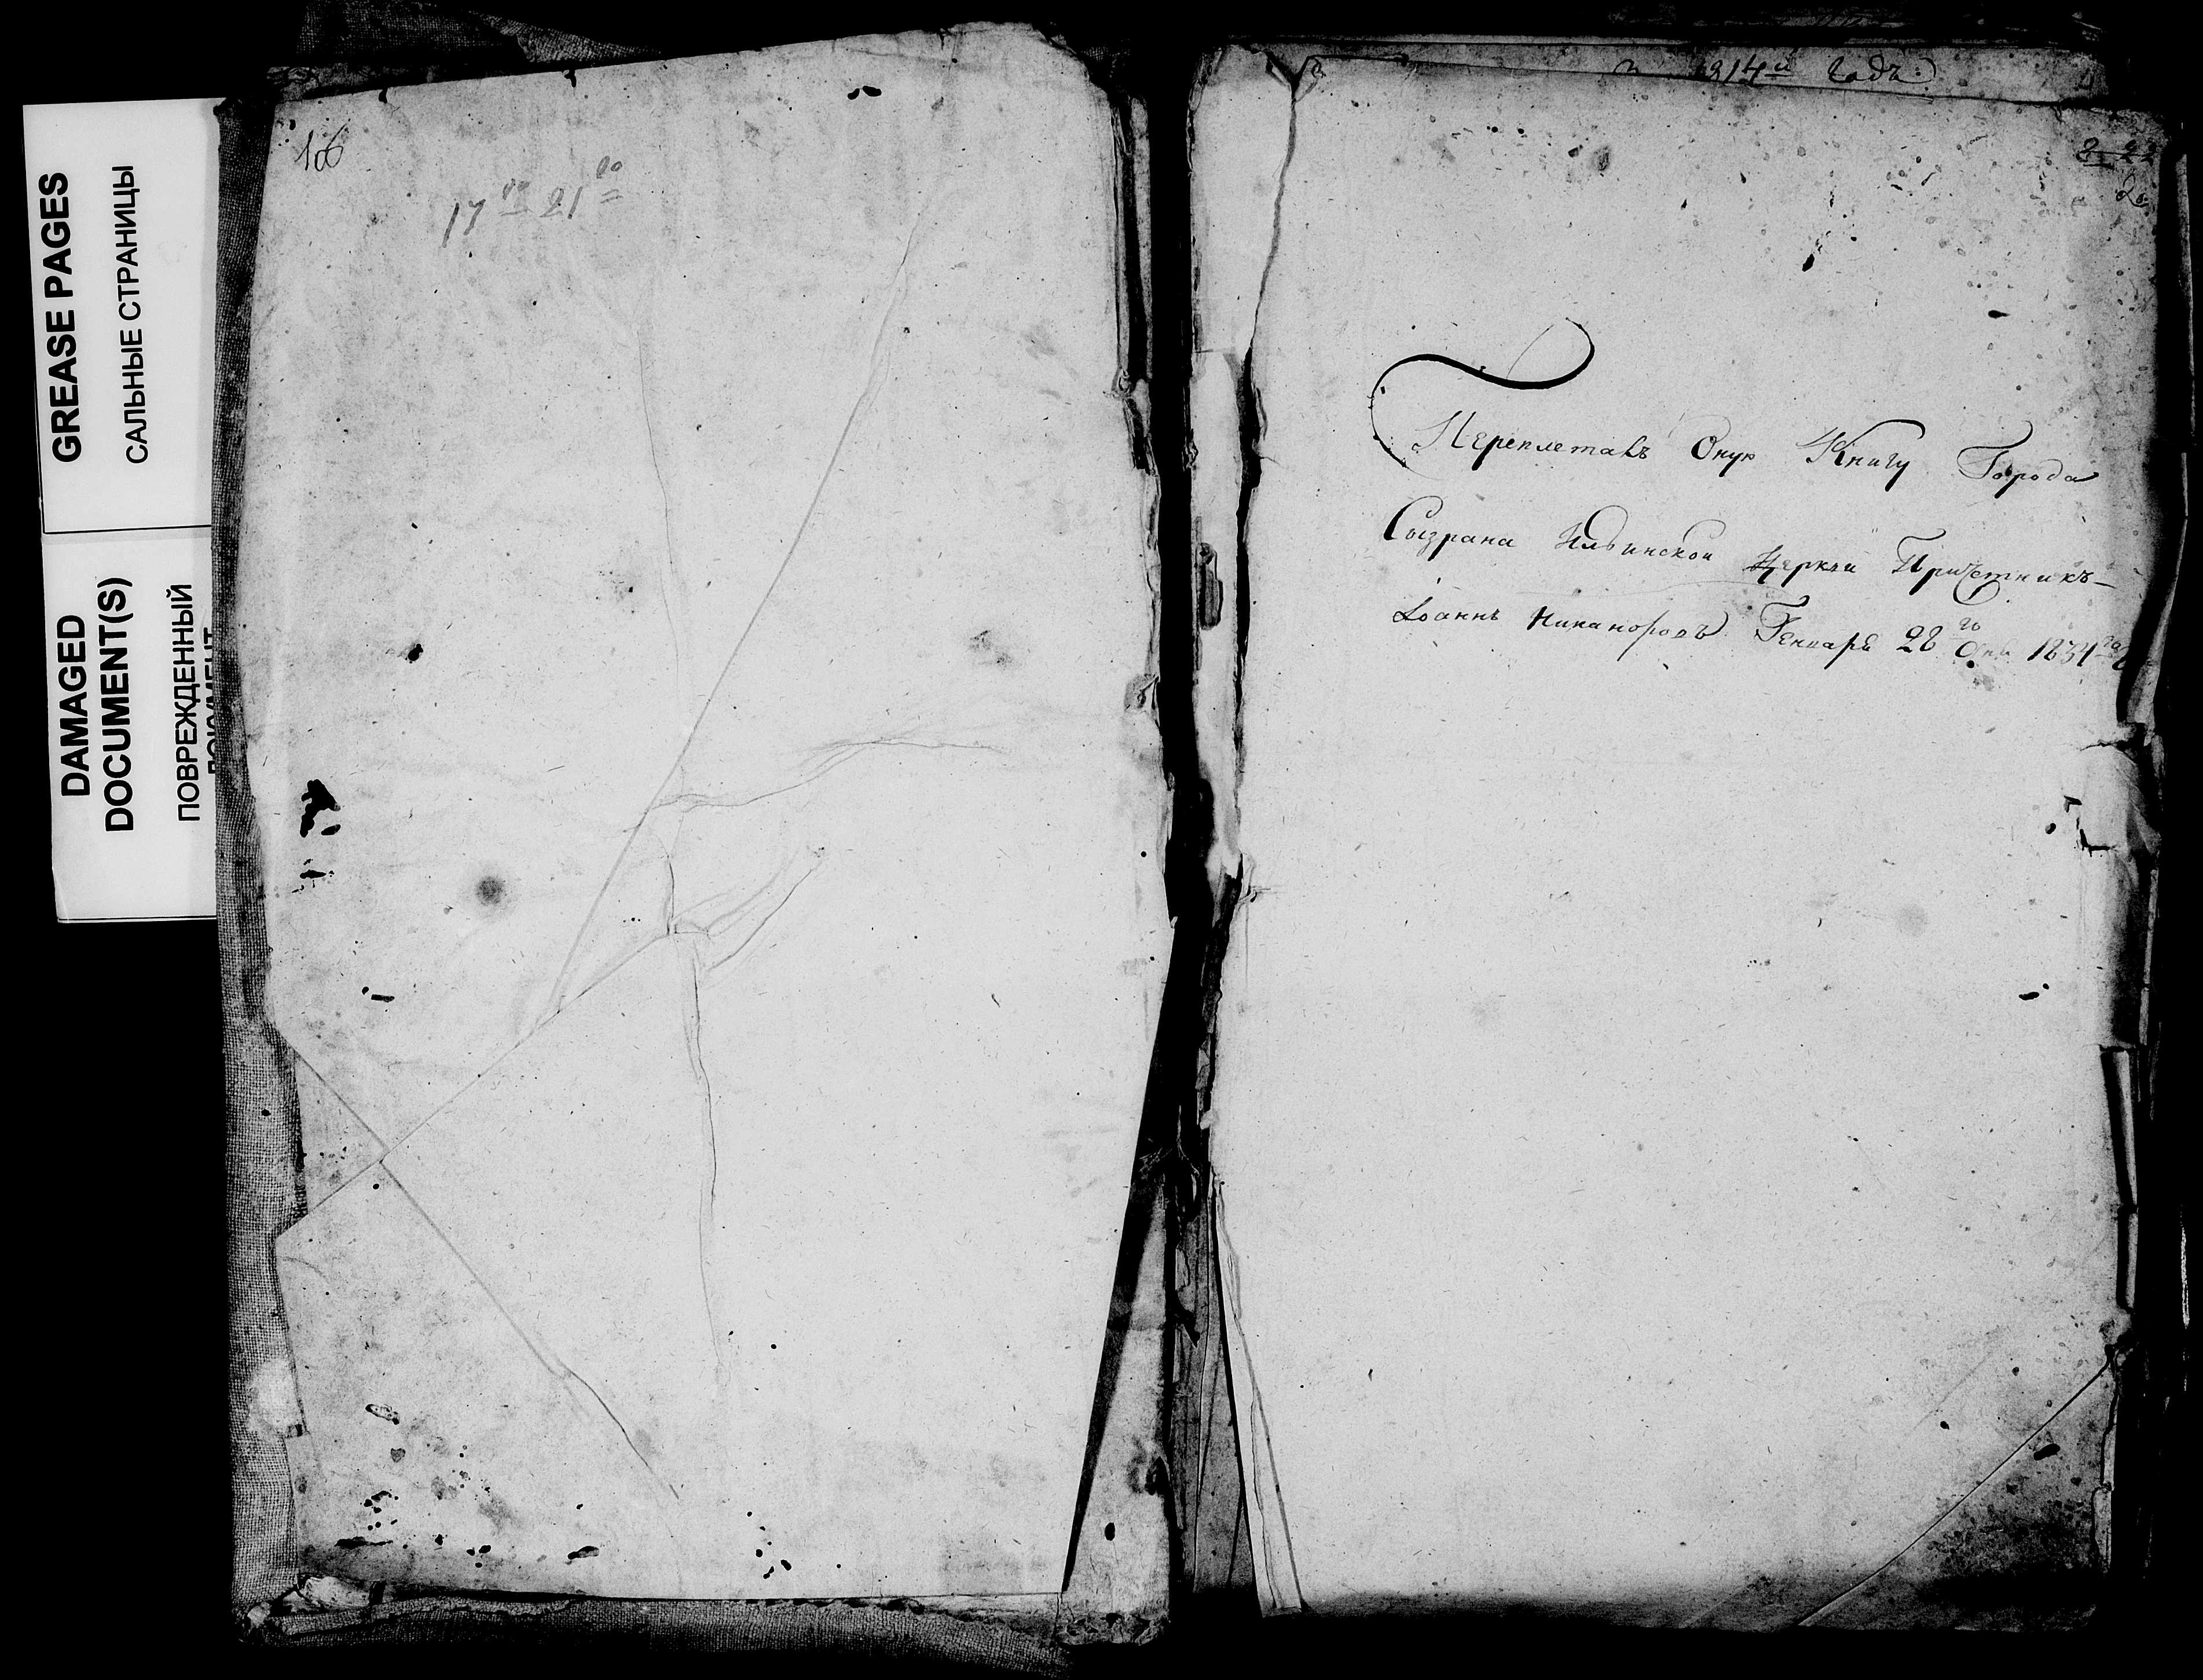 GREASE PAGES
САЛЬНЫЕ СТРАНИЦЫ
DAMAGED
DOCUMENT(S)
ПОВРЕЖДЕННЫЙ
ДОКУМЕНТ
106
1814й годъ
Переплеталъ Оную Книгу Города
Сызрана Ильинской Церкви Причетникъ
Іоаннъ Никаноровъ Генваря 28го дня 1834го